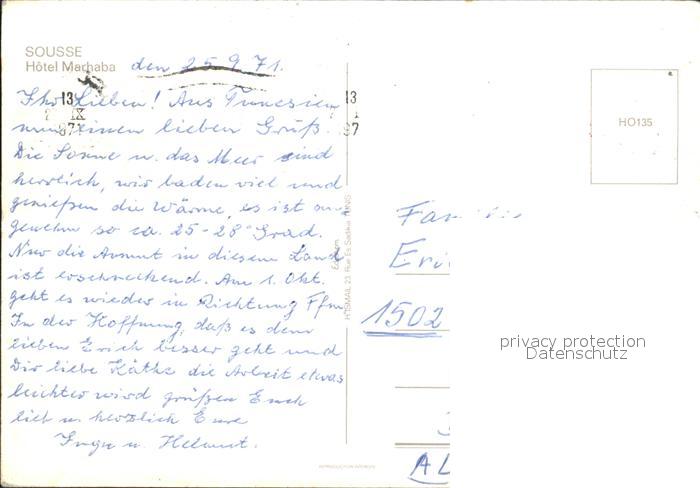 SOUSSE
Hôtel Marhaba
den 25.9.71.
Ihr Lieben! Aus Tunesien
nun einen lieben Gruß.
Die Sonne u. das Meer sind
herrlich, wir baden viel und
genießen die Wärme, es ist an-
genehm so ca. 25-28° Grad.
Nur die Armut in diesem Land
ist erschreckend. Am 1. Okt.
geht es wieder in Richtung Ffm.
In der Hoffnung, daß es dem
lieben Erich besser geht und
Dir liebe Käthe die Arbeit etwas
leichter wird grüßen Euch
lieb u. herzlich Eure
Inge u. Helmut.
13
13
7
HO135
Fam
Eri
1502
AL
privacy protection
Datenschutz